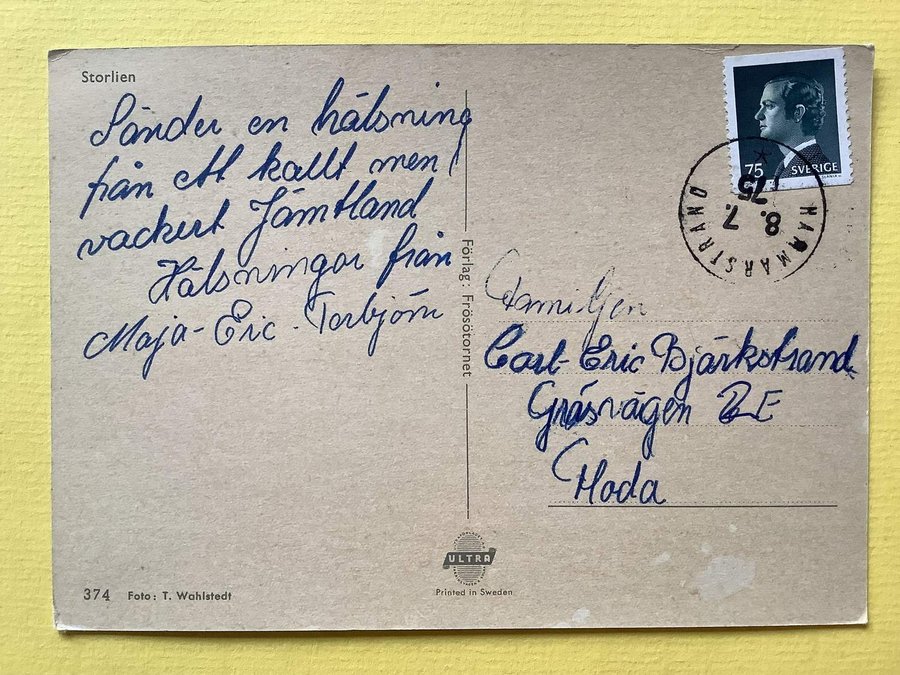 Storlien
Sänder en hälsning
från ett kallt men
vackert Jämtland
Hälsningar från
Maja-Eric-Torbjörn
374 Foto: T. Wahlstedt
Förlag: Frösötornet
ULTRA
Printed in Sweden
75 SVERIGE
HAMMARSTRAND
8. 7.
75
Familjen
Carl-Eric Bjärkstrand
Gräsvägen 2E
Moda